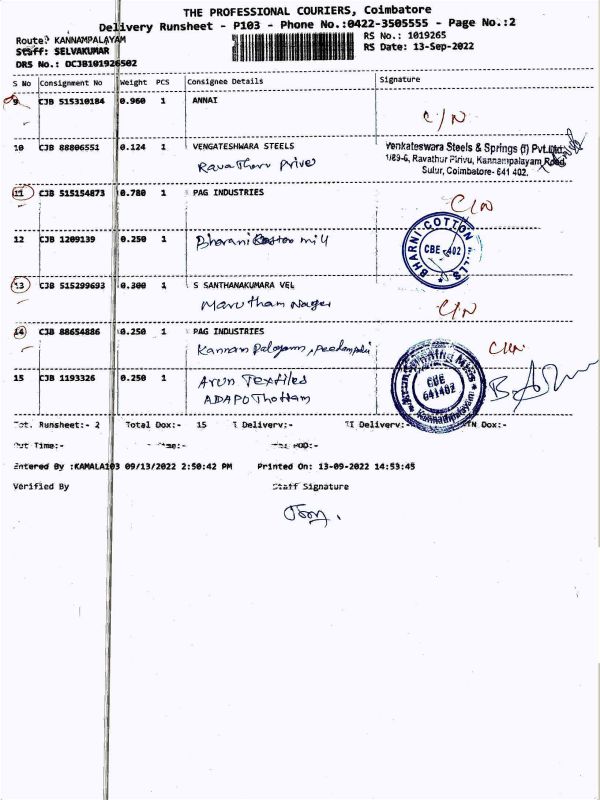 THE PROFESSIONAL COURIERS, Coimbatore
Delivery Runsheet - P103 - Phone No.:0422-3505555 - Page No.:2
Route: KANNAMPALAYAM
Staff: SELVAKUMAR
DRS No.: DCJB101926502
RS No.: 1019265
RS Date: 13-Sep-2022
S No Consignment No Weight PCS Consignee Details Signature
9 CJB 515310184 0.960 1 ANNAI
C/N
10 CJB 88806551 0.124 1 VENGATESHWARA STEELS
Venkateswara Steels & Springs (I) Pvt.Ltd.
1/89-6, Ravathur Pirivu, Kannampalayam Road,
Sulur, Coimbatore- 641 402.
11 CJB 515154873 0.780 1 PAG INDUSTRIES
C/N
12 CJB 1209139 0.250 1 Bharani Cotton mill
BHARNI COTTON MILLS
CBE - 402
13 CJB 515299693 0.300 1 S SANTHANAKUMARA VEL
Marutham Nager
C/N
14 CJB 88654886 0.250 1 PAG INDUSTRIES
C/N
15 CJB 1193326 0.250 1 Arun Textiles
ADAPO Thottam
Arun Spinning Mills
CBE
641402
Kannampalayam
Tot. Runsheet:- 2 Total Dox:- 15
Out Time:-
Entered By :KAMALA103 09/13/2022 2:50:42 PM Printed On: 13-09-2022 14:53:45
Verified By Staff Signature